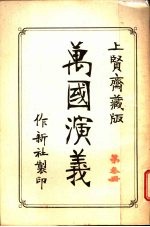 上賢齋藏版
萬國演義
第叁册
作新社製印